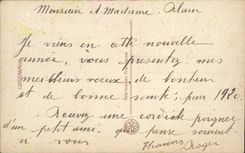 Monsieur et Madame Alain
Je viens en cette nouvelle
année, vous présenter mes
meilleurs voeux de bonheur
et de bonne santé, par 192
Recevez une cordiale poignée
d'un petit ami qui pense souvent
a vous
Roger